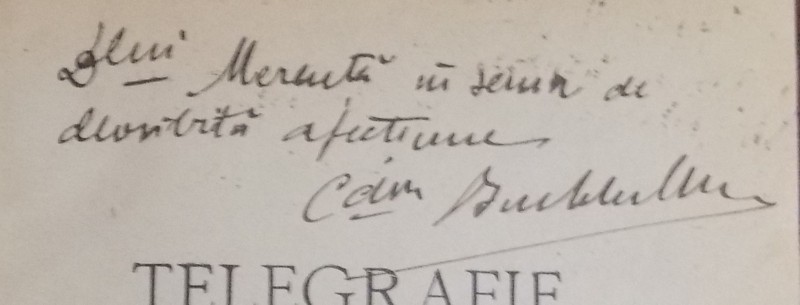 Dlui Merență în semn de
deosebită afecțiune
Cdm
TELEGRAFIE